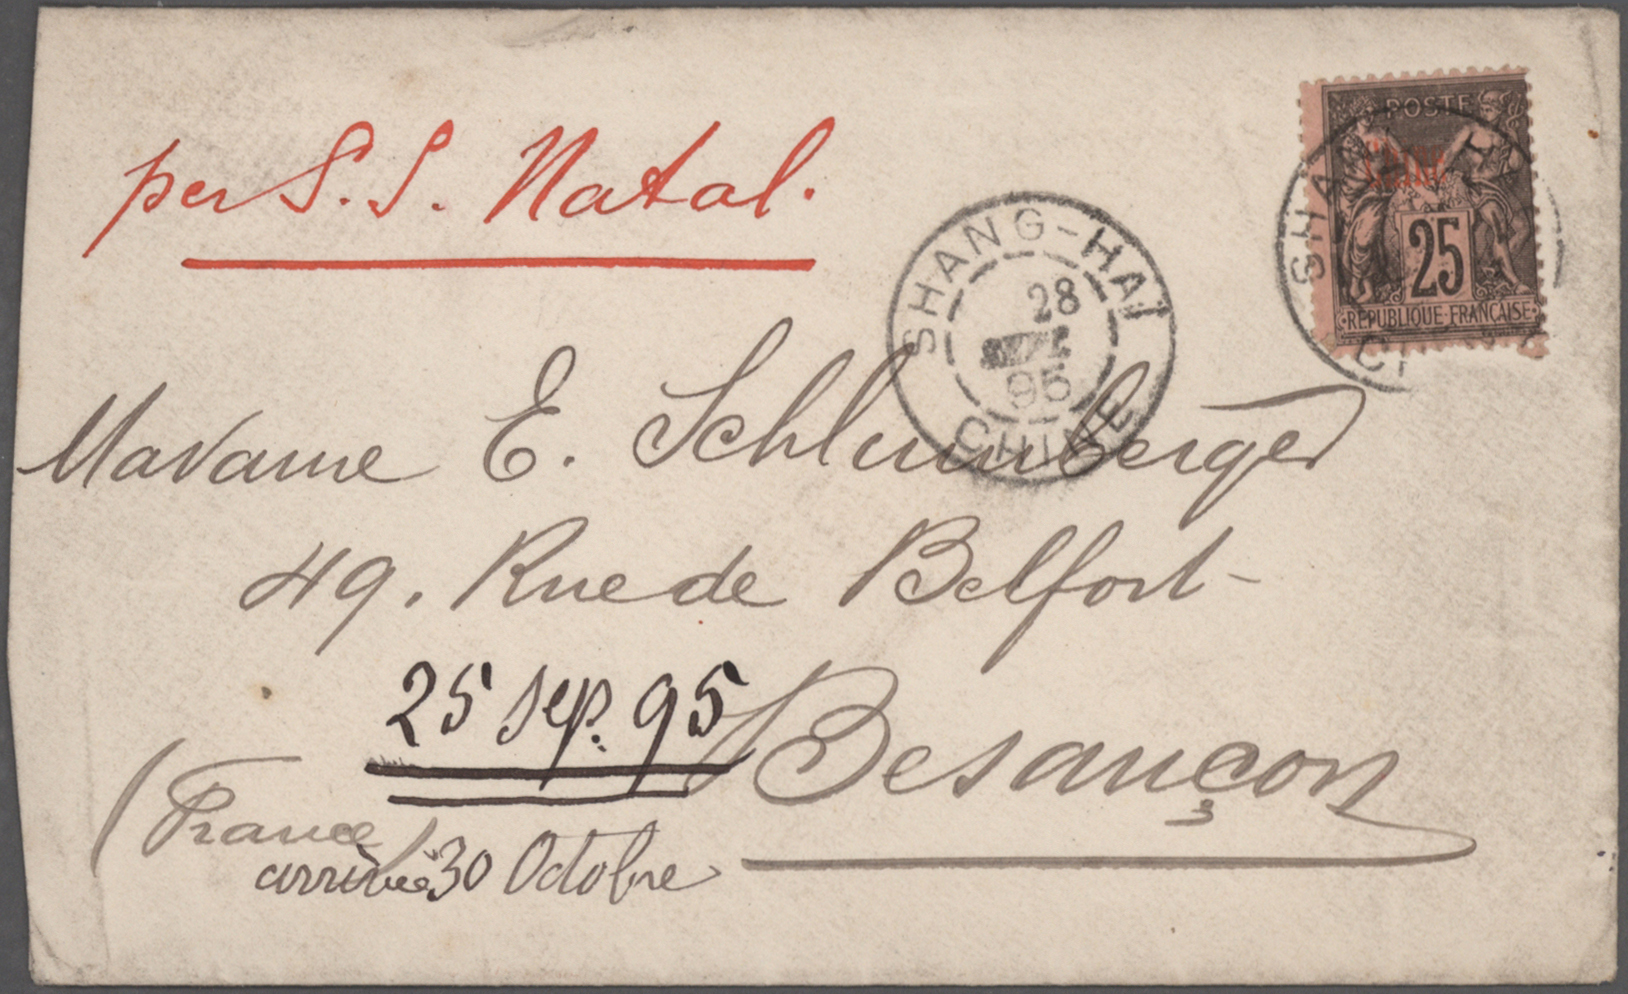 per S.S. Natal.
POSTE
Chine
25
REPUBLIQUE FRANÇAISE
SHA
SHANG-HAÏ
28
95
CHINE
Madame E. Schlumberger
49. Rue de Belfort
25 sep. 95
Besançon
(France)
arrivée 30 Octobre